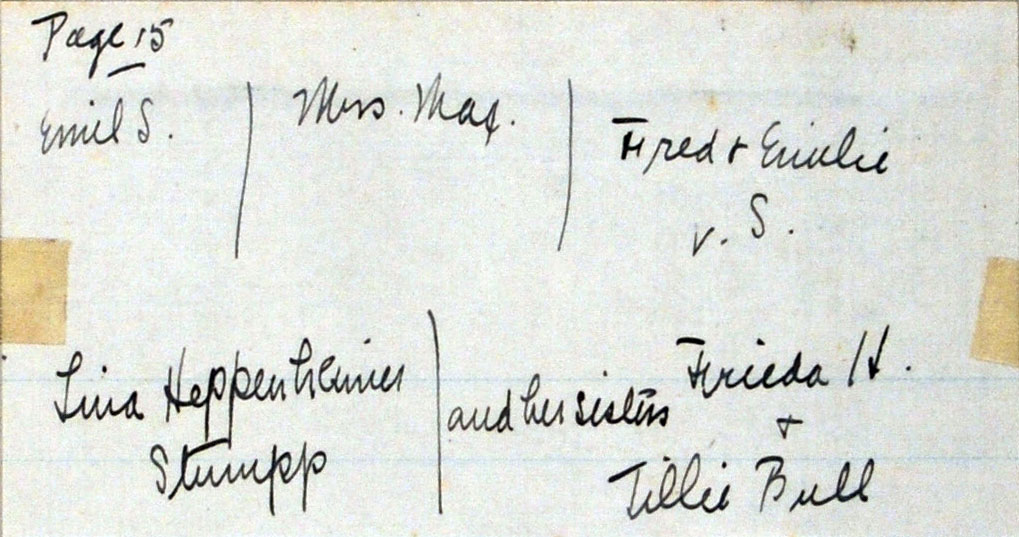 Page 15
Emil S. Mrs. Mag. Fred + Emilie
v. S.
Lina Heppenheimer and her sisters Frieda H.
Stumpp +
Tillie Bull